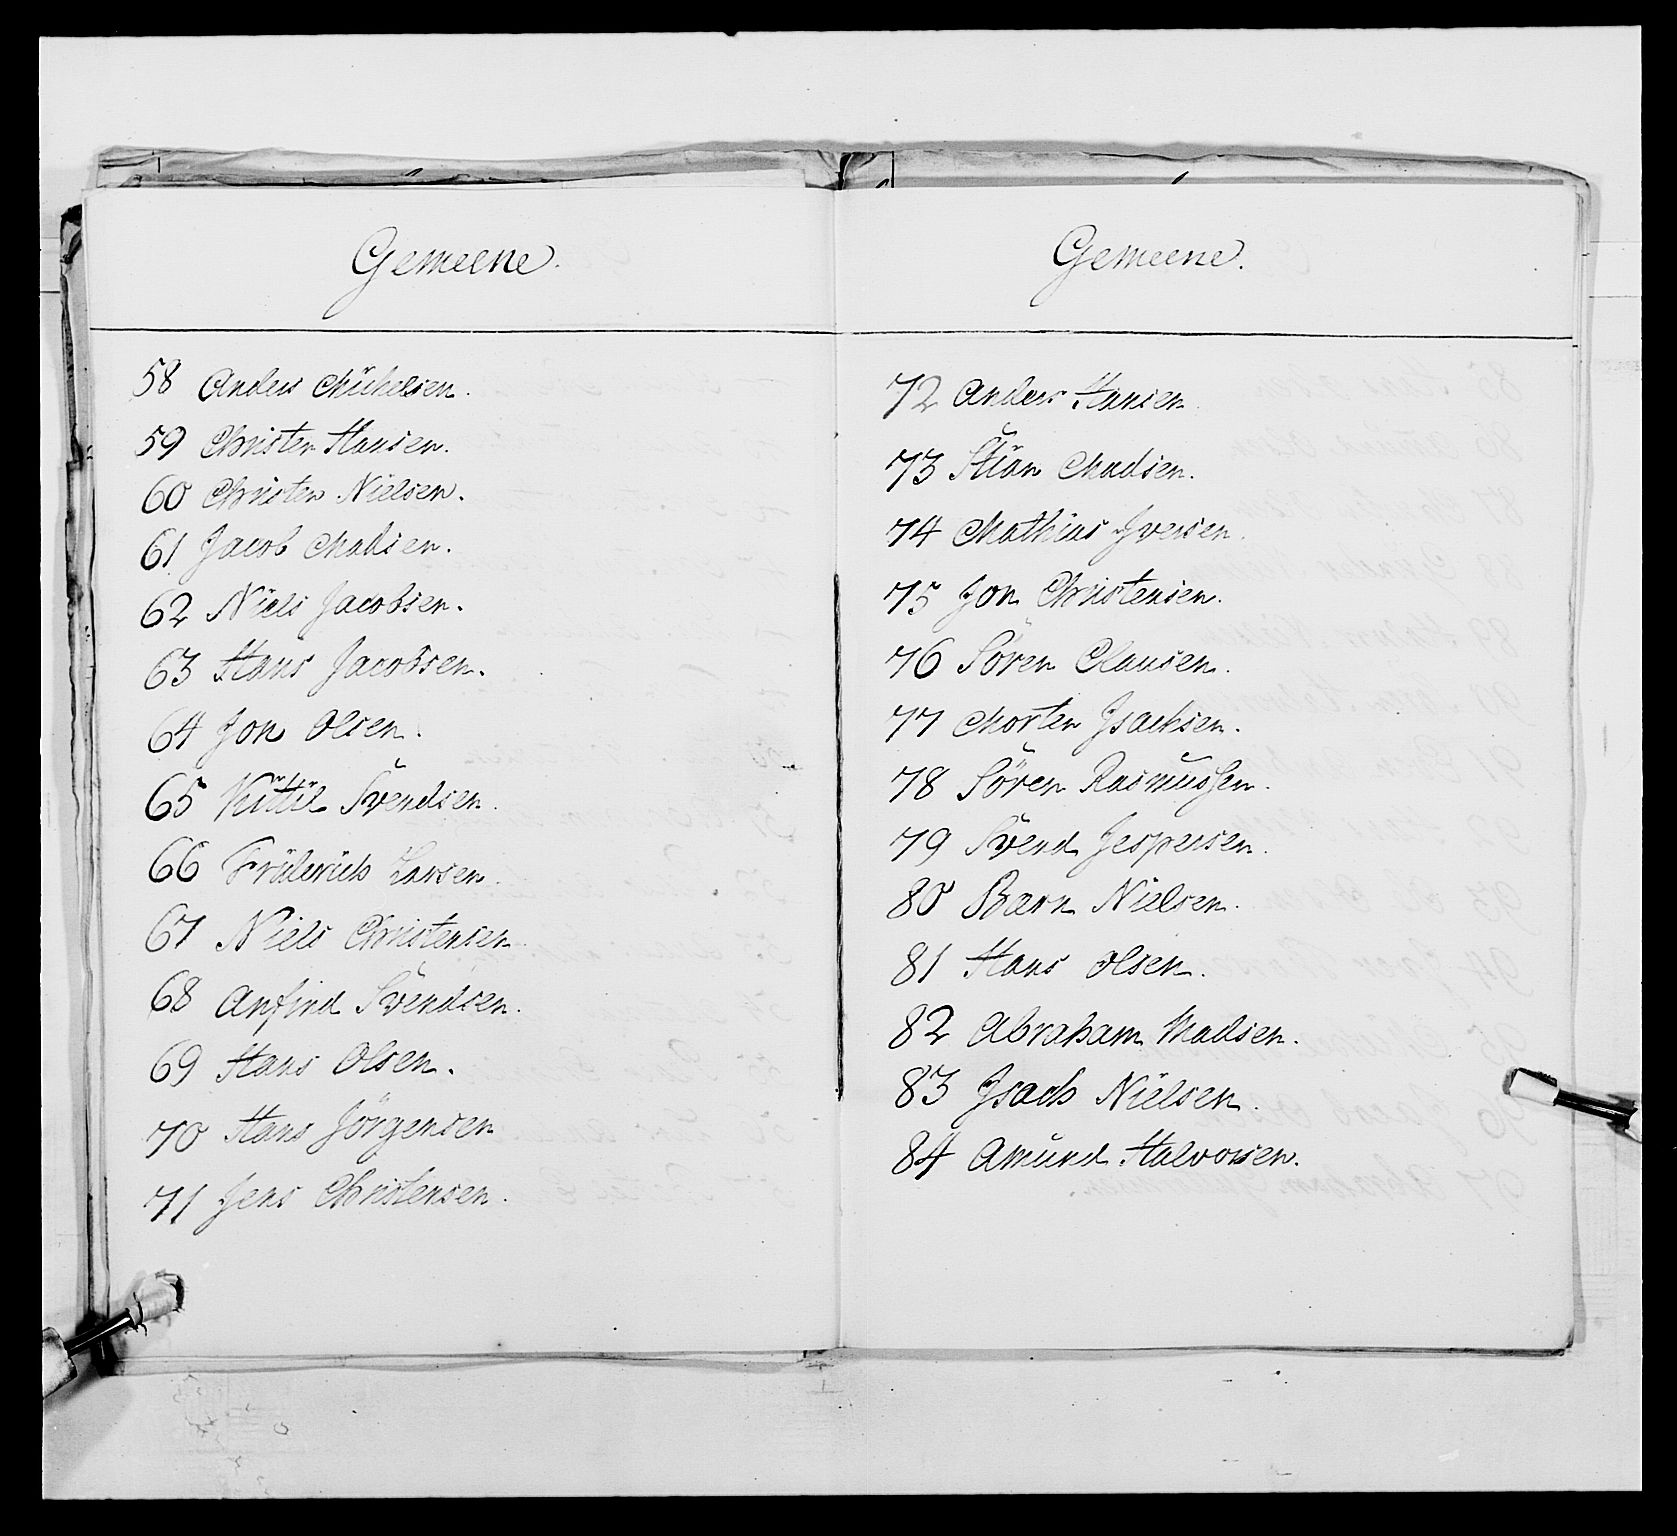 Gemeene.
58 Anders Michelsen.
59 Christen Hansen.
60 Christen Nielsen.
61 Jacob Madsen.
62 Niels Jacobsen.
63 Hans Jacobsen.
64 Jon Olsen.
65 Kittil Svendsen.
66 Friderich Larsen.
67 Niels Christensen
68 Anfind Svendsen.
69 Hans Olsen.
70 Hans Jörgensen
71 Jens Christensen.
Gemeene.
72 Anders Hansen
73 Stian Madsen.
74 Mathias Iversen.
75 Jon Christensen.
76 Sören Clausen.
77 Morten Isachsen.
78 Sören Rasmussen.
79 Svend Jespersen.
80 Bærn Nielsen.
81 Hans Olsen.
82 Abraham Madsen.
83 Isach Nielsen.
84 Amund Halvorsen.